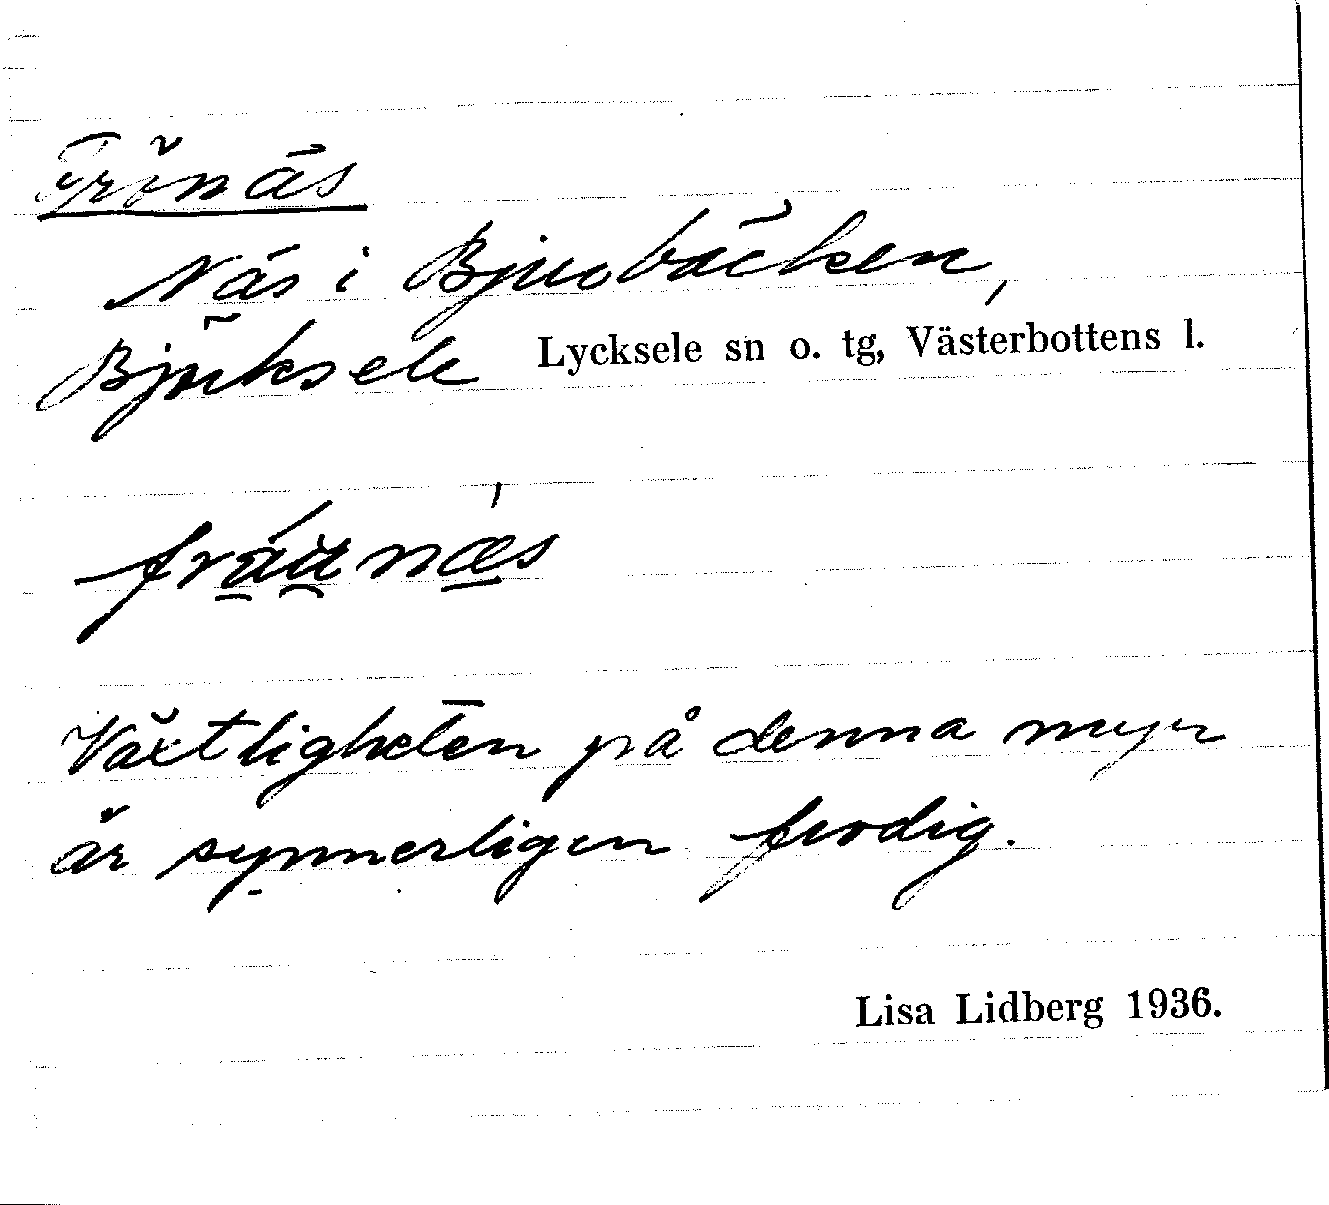 Frönäs
Näs i Bjurbäcken,
Björksele Lycksele sn o. tg, Västerbottens l.
Växtligheten på denna myr
är synnerligen frodig.
Lisa Lidberg 1936.